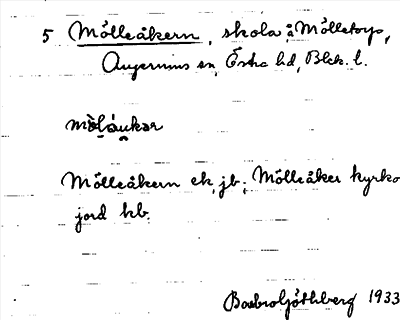 5 Mölleåkern, skola å Mölletorp,
Augerums sn, Östra hd, Blek. l.
möḷåukar
Mölleåkern ek, jb; Mölleåker kyrko
jord kb.
Barbro Göthberg 1933